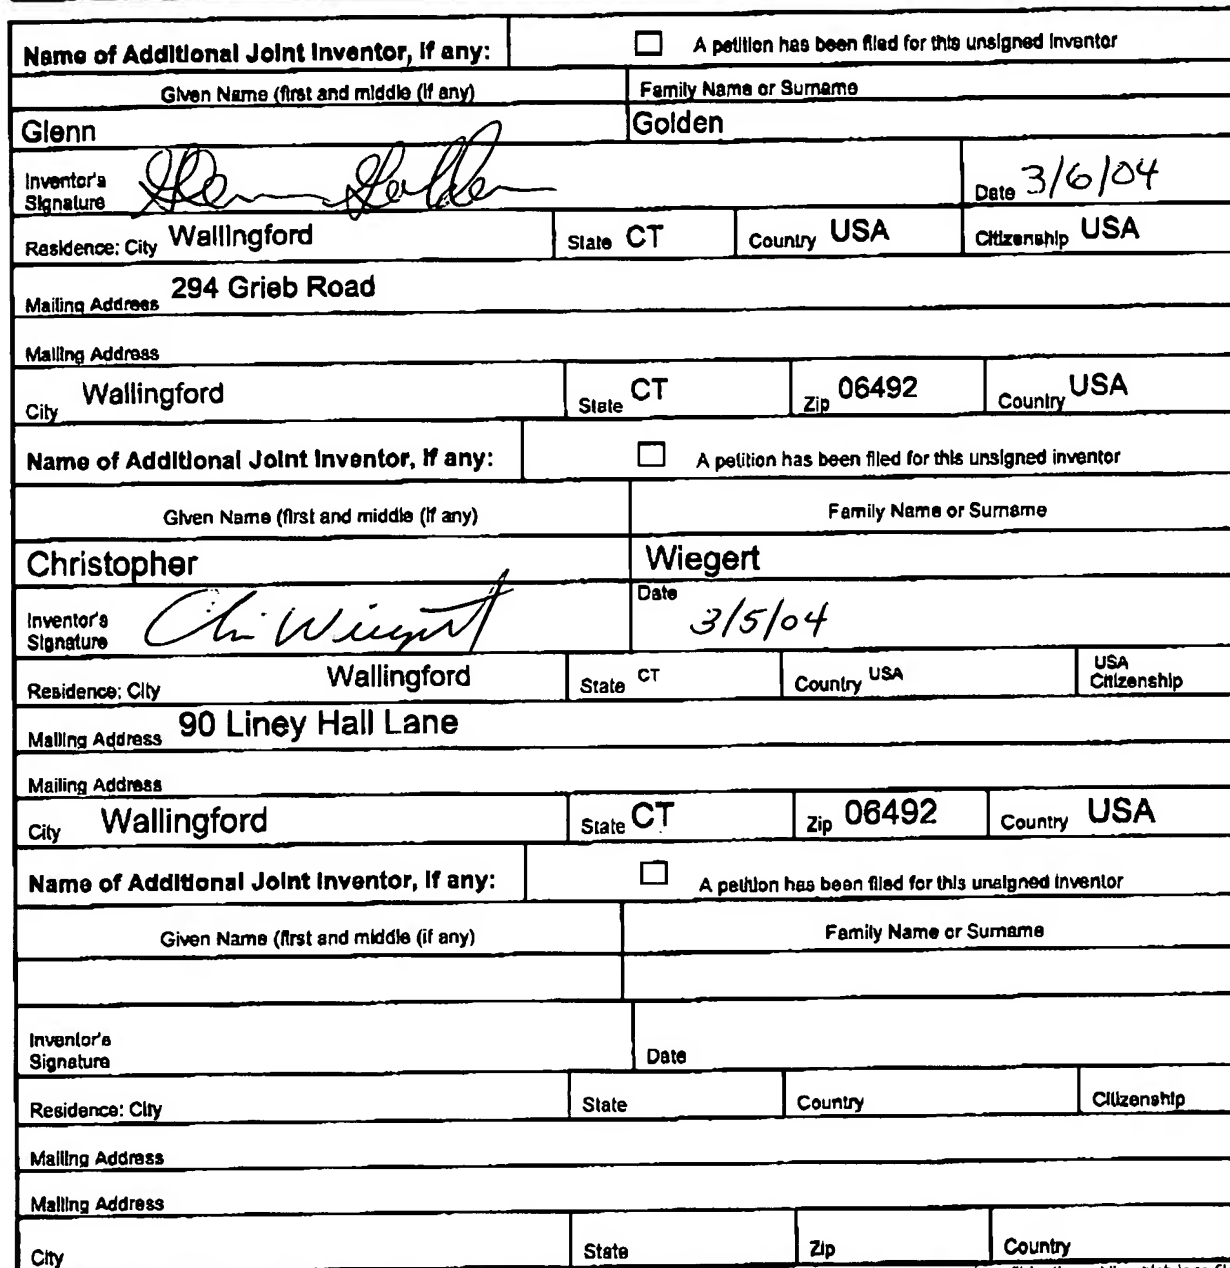 Name of Additional Joint Inventor, if any: A petition has been filed for this unsigned inventor
Given Name (first and middle (if any) Family Name or Surname
Glenn Golden
Inventor's
Signature Glenn Golden Date 3/6/04
Residence: City Wallingford State CT Country USA Citizenship USA
Mailing Address 294 Grieb Road
Mailing Address
City Wallingford State CT Zip 06492 Country USA
Name of Additional Joint Inventor, if any: A petition has been filed for this unsigned inventor
Given Name (first and middle (if any) Family Name or Surname
Christopher Wiegert
Inventor's
Signature Chris Wiegert Date 3/5/04
Residence: City Wallingford State CT Country USA USA
Citizenship
Mailing Address 90 Liney Hall Lane
Mailing Address
City Wallingford State CT Zip 06492 Country USA
Name of Additional Joint Inventor, if any: A petition has been filed for this unsigned inventor
Given Name (first and middle (if any) Family Name or Surname
Inventor's
Signature Date
Residence: City State Country Citizenship
Mailing Address
Mailing Address
City State Zip Country